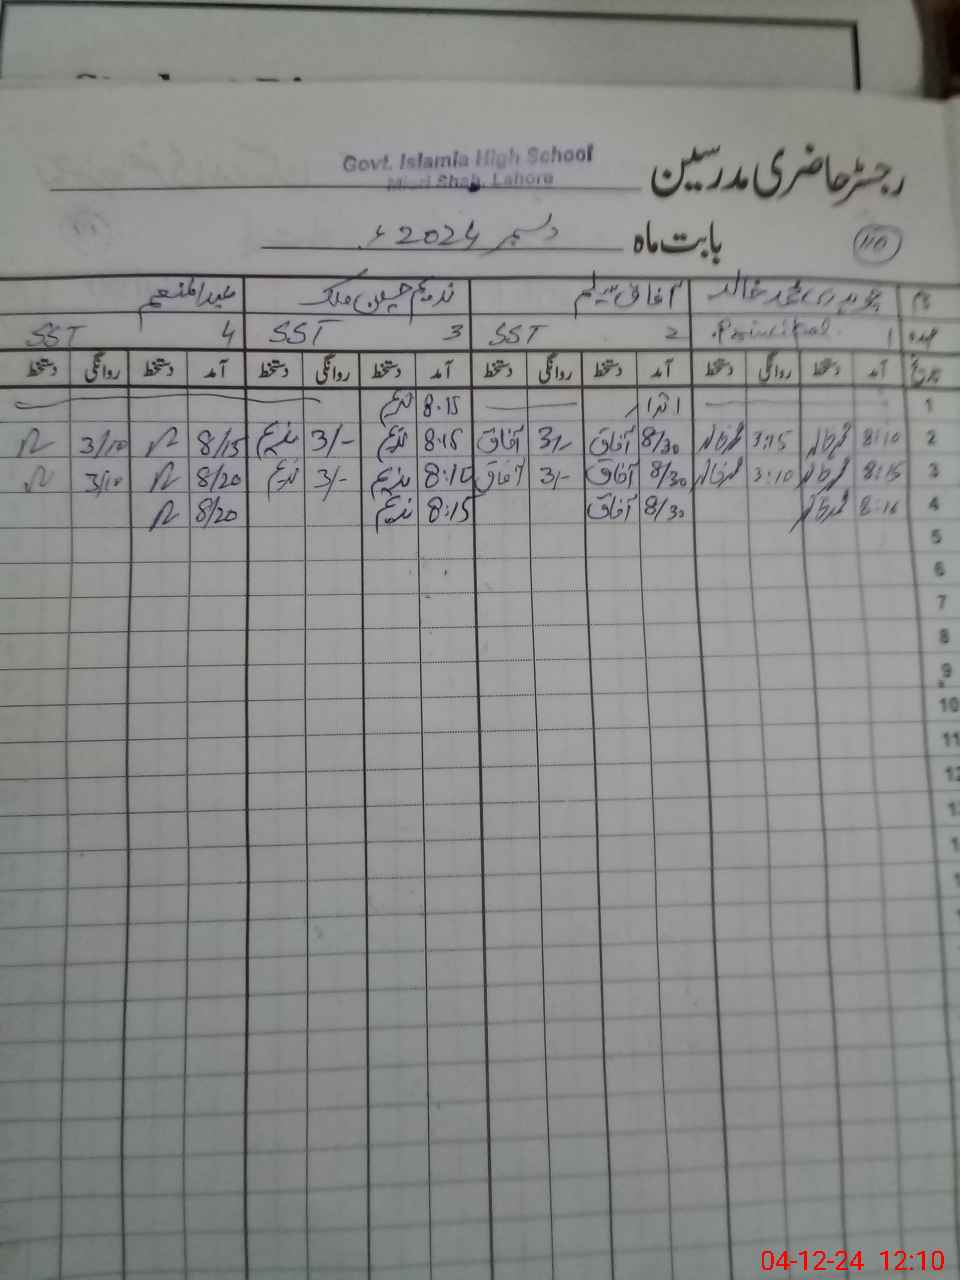 Govt. Islamia High School
رجسٹر حاضری مدرسین
Misri Shah, Lahore
بابت ماہ دسمبر 2024ء
110
نام چوہدری محمد خالد آفاق سلیم ندیم حسین ملک عبدالمنعم
عہدہ 1 Principal. 2 SST 3 SST 4 SST
تاریخ آمد دستخط روانگی دستخط آمد دستخط روانگی دستخط آمد دستخط روانگی دستخط آمد دستخط روانگی دستخط
1 اتوار 8.15 ندیم
2 8:10 3:15 8/30 آفاق 3/- آفاق 8:15 ندیم 3/- ندیم 8/15 3/10
3 8:15 3:10 8/30 آفاق 3/- آفاق 8:15 ندیم 3/- ندیم 8/20 3/10
4 8:10 8/30 آفاق 8:15 ندیم 8/20
5
6
7
8
9
10
11
12
04-12-24 12:10